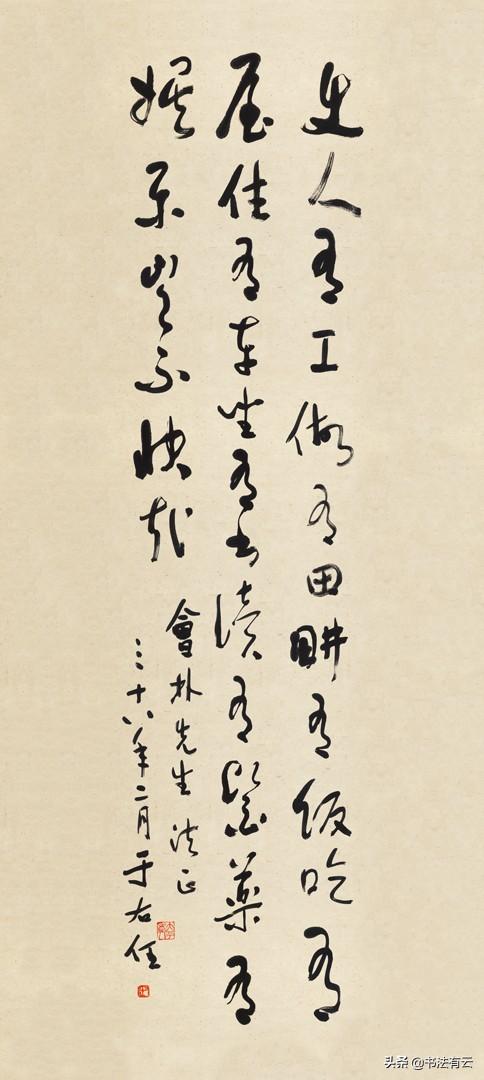 使人有工做有田畊有飯吃有
屋住有車坐有書讀有醫藥有
娛樂豈不快哉
會朴先生 法正
三十八年二月于右任
头条 @书法有云